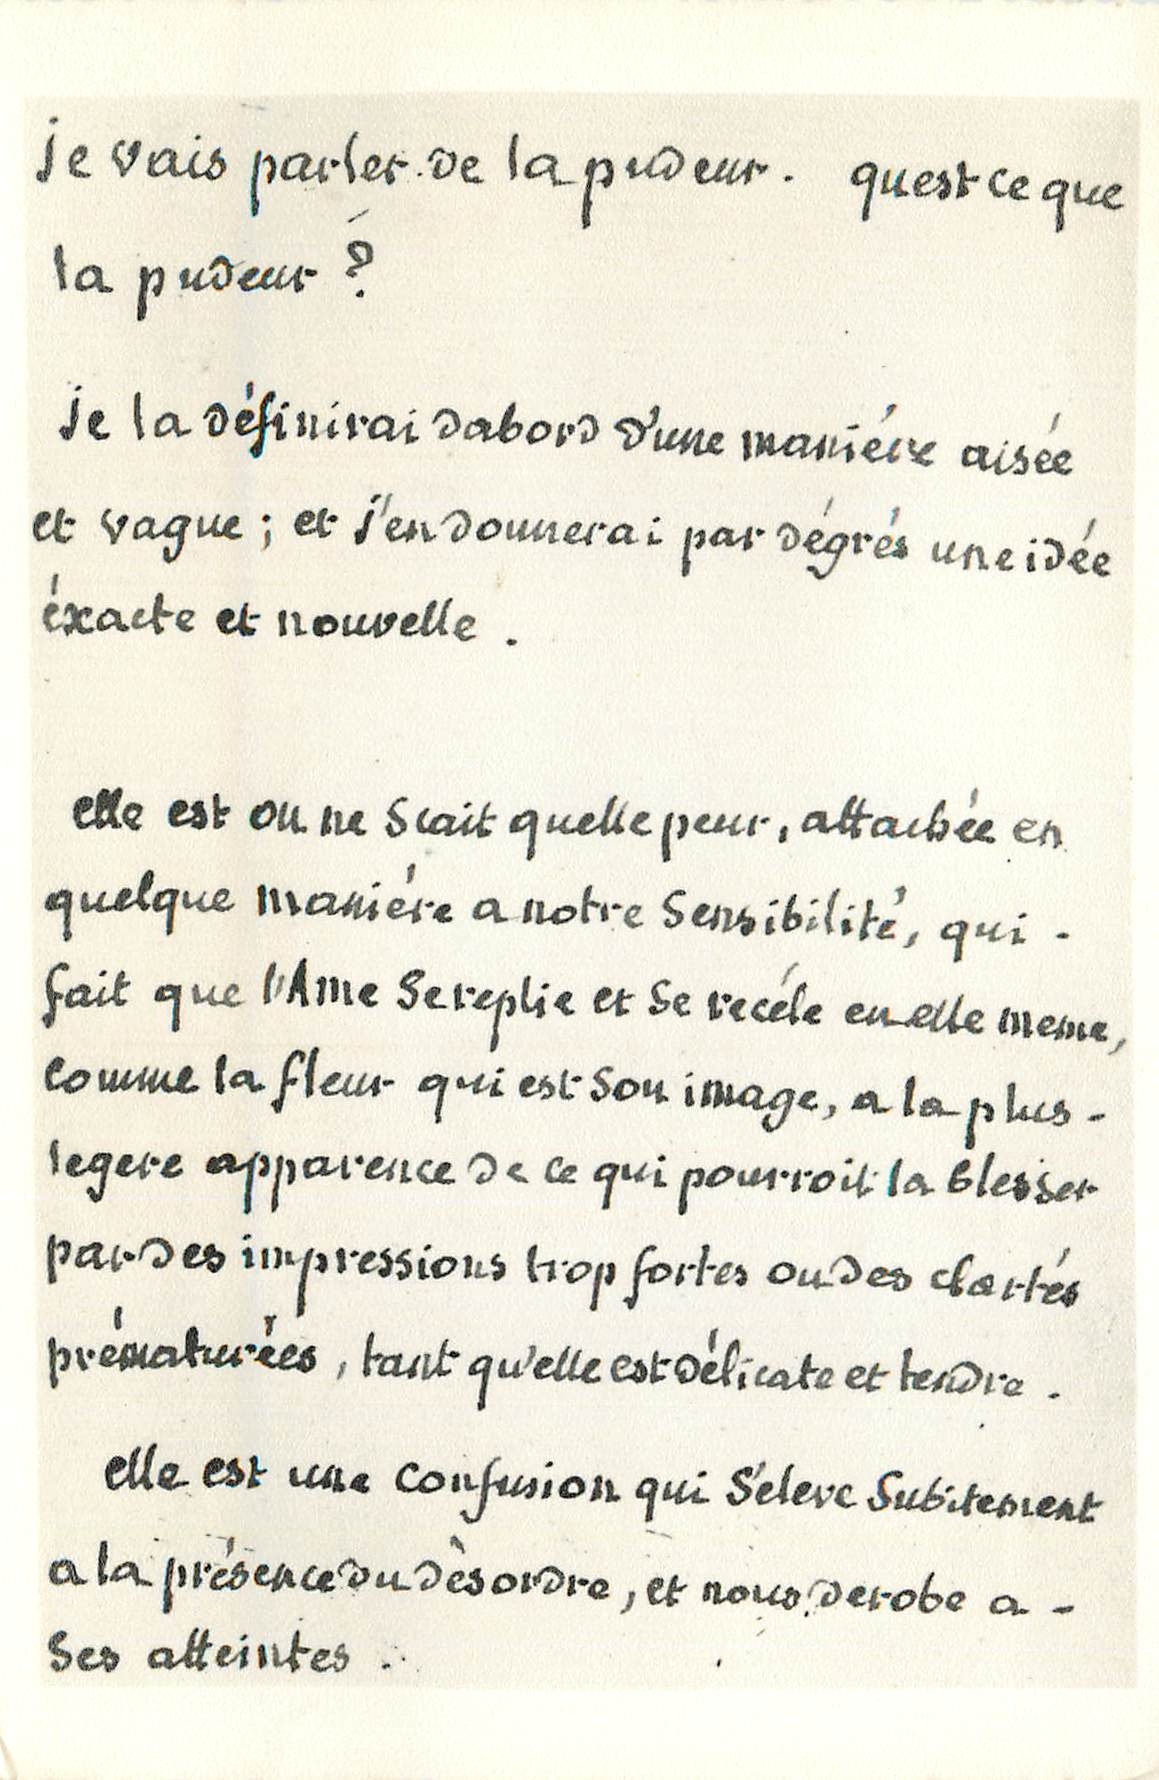 je vais parler de la pudeur. quest ce que
la pudeur ?
je la définirai dabord d'une maniére aisée
et vague ; et j'en donnerai par dégrés une idée
éxacte et nouvelle .
elle est on ne scait quelle peur, attachée en
quelque maniére a notre Sensibilité, qui -
fait que l'Ame Se replie et Se recéle en elle meme,
comme la fleur qui est Son image, a la plus -
legere apparence de ce qui pourroit la blesser
par des impressions trop fortes ou des clartés
prématurées, tant qu'elle est délicate et tendre .
elle est une confusion qui S'éleve Subitement
a la présence du dèsordre, et nous derobe a -
Ses atteintes .